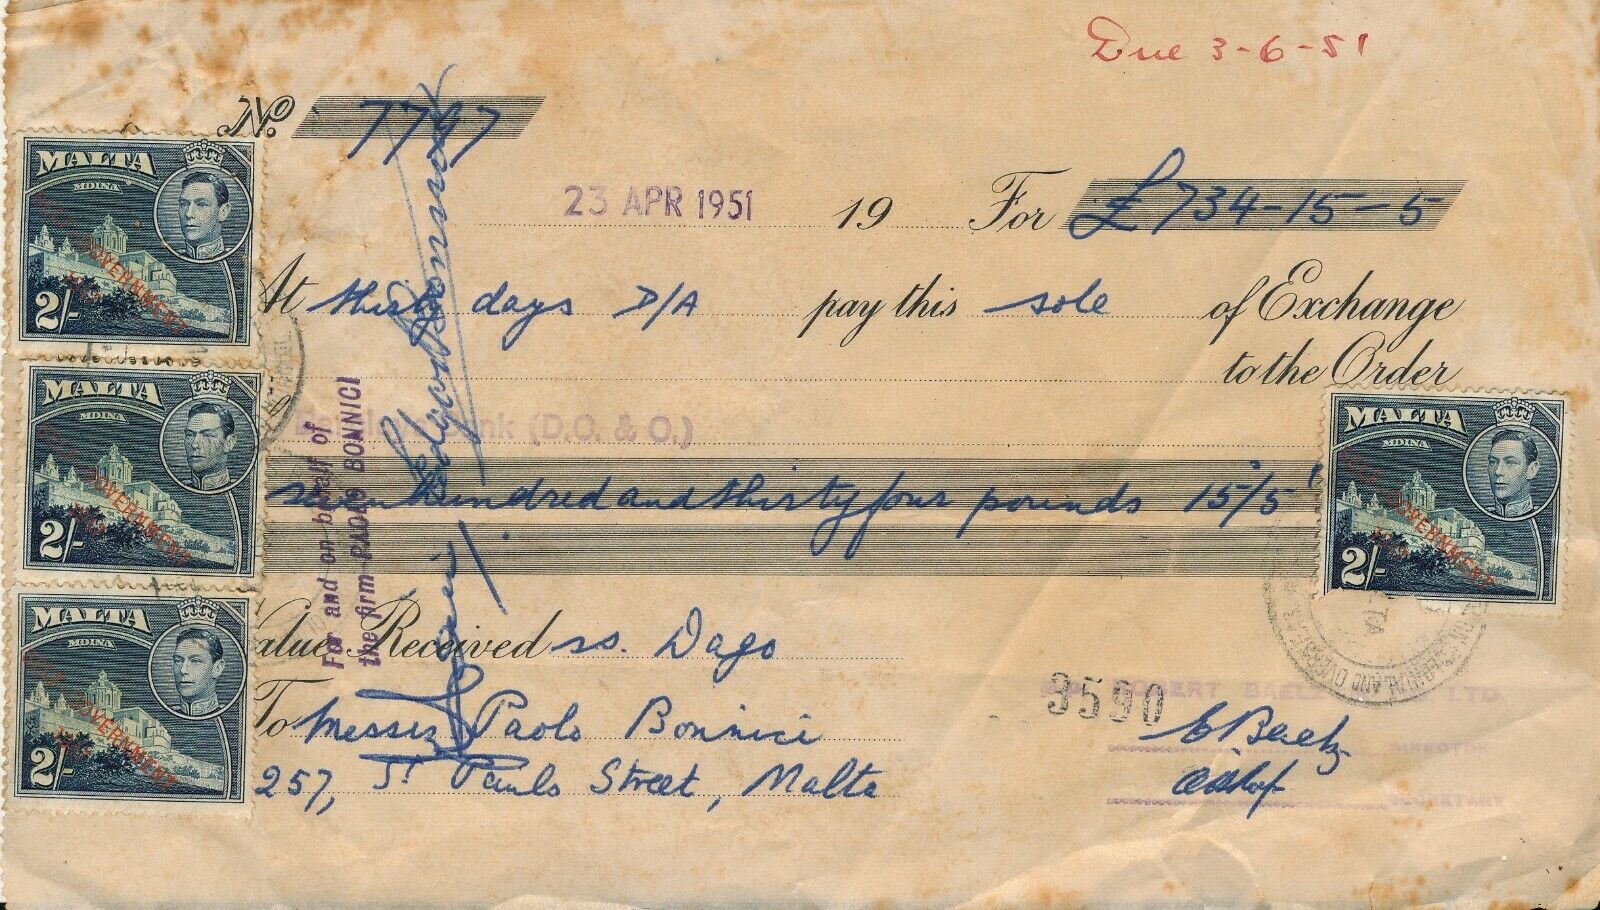 Due 3-6-51
No. 7797
23 APR 1951 19 For £734-15-5
At thirty days D/A pay this sole of Exchange
to the Order
Barclays Bank (D.C. & O.)
seven hundred and thirty four pounds 15/5
Value Received ss. Dago
To Messrs Paolo Bonnici
257, St Pauls Street, Malta
For and on behalf of
the firm PAOLO BONNICI
3590
ROBERT BAELZ LTD.
DIRECTOR
SECRETARY
MALTA
MDINA
SELF-GOVERNMENT
1947
2/-
MALTA
MDINA
SELF-GOVERNMENT
1947
2/-
MALTA
MDINA
SELF-GOVERNMENT
1947
2/-
MALTA
MDINA
SELF-GOVERNMENT
1947
2/-